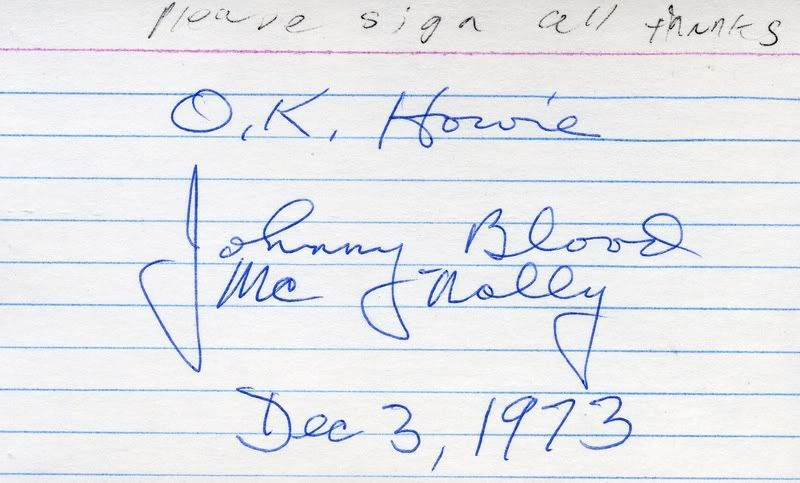 please sign all thanks
O.K. Howie
Johnny Blood
Mc Nally
Dec 3, 1973